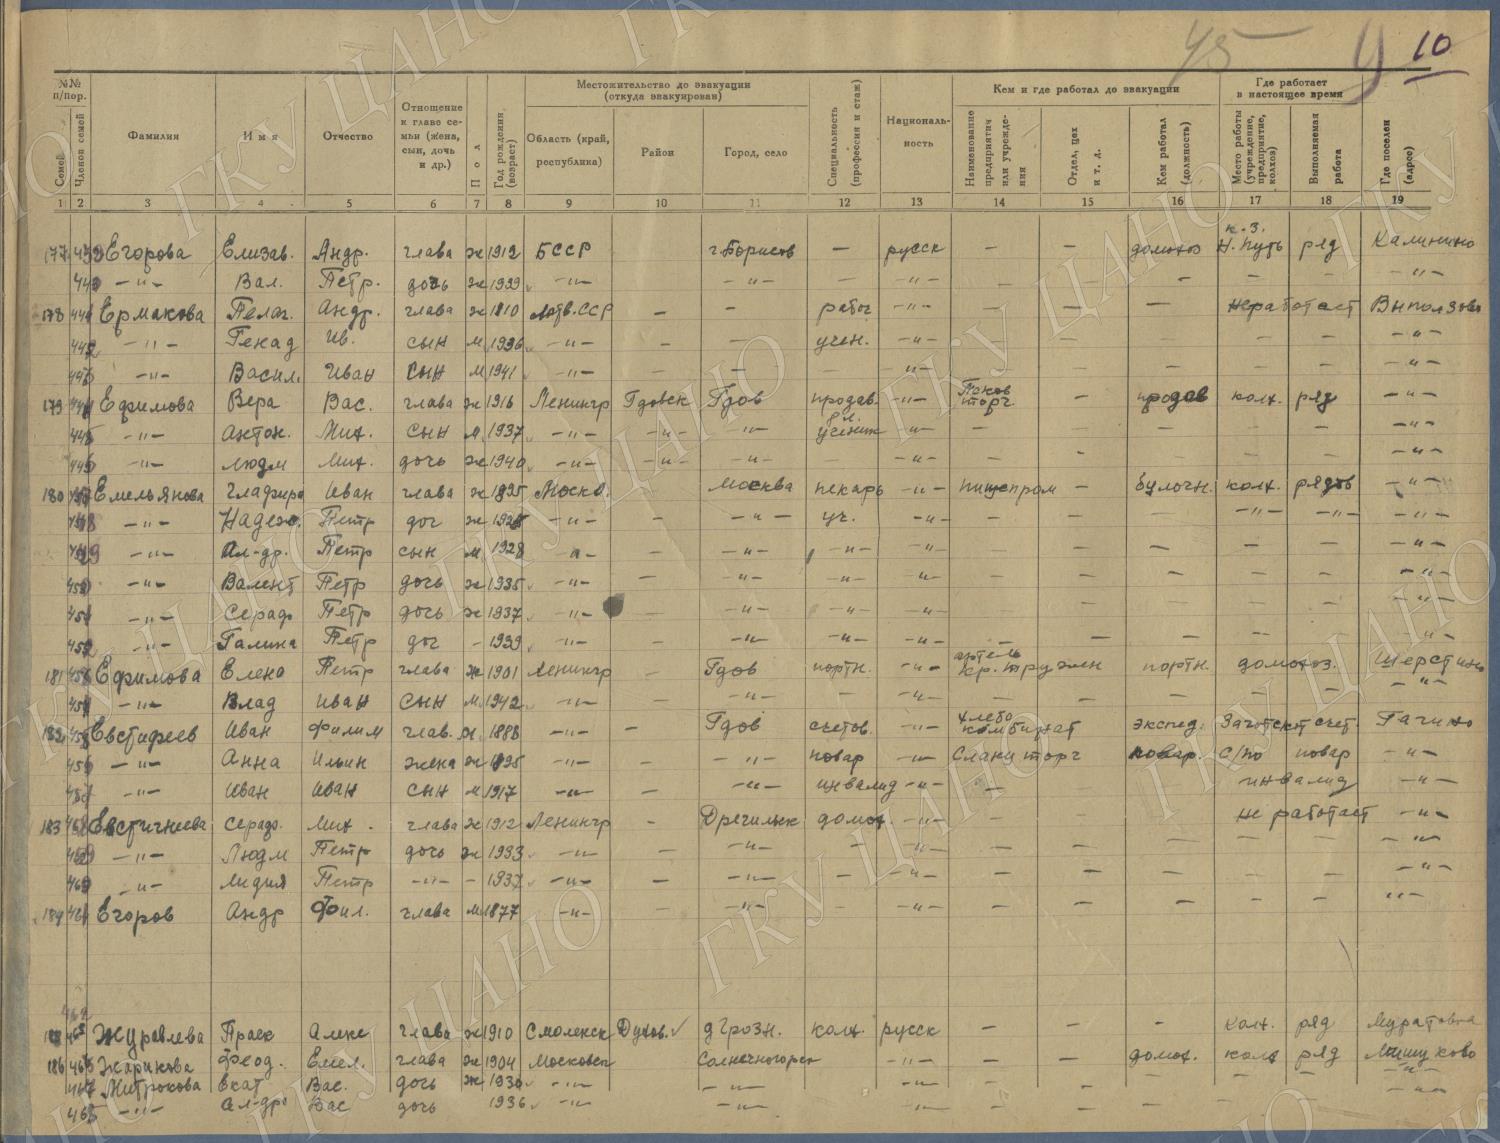 45 9 10
№№ п/пор.
Семей
Членов семей
Фамилия
Имя
Отчество
Отношение к главе семьи (жена, сын, дочь и др.)
Пол
Год рождения (возраст)
Местожительство до эвакуации (откуда эвакуирован)
Область (край, республика)
Район
Город, село
Специальность (профессия и стаж)
Националь- ность
Кем и где работал до эвакуации
Наименование предприятия или учреждения
Отдел, цех и т. д.
Кем работал (должность)
Где работает в настоящее время
Место работы (учреждение, предприятие, колхоз)
Выполняемая работа
Где поселен (адрес)
1 2 3 4 5 6 7 8 9 10 11 12 13 14 15 16 17 18 19
177 Егорова Елизав. Андр. глава ж 1912 БССР г. Борисов — русск — — домохоз к.з. Н. Путь ряд Калинино
440 —"— Вал. Петр. дочь ж 1939 —"— —"— — —"— — — — — — —"—
178 441 Ермакова Пелаг. Андр. глава ж 1910 Латв. ССР — — работ —"— — — — не работает Выползово
442 —"— Генад Ив. сын м 1936 —"— — — учен. —"— — — — — — —"—
443 —"— Васил. Иван сын м 1941 —"— — — —"— — — — — — —"—
179 444 Ефимова Вера Вас. глава ж 1916 Ленингр Гдовск Гдов продав. —"— Псков торг. — продав колх. ряд —"—
445 —"— Антон. Мих. сын м. 1937 —"— —"— —"— ученик —"— — — — — — —"—
446 —"— Людм Мих. дочь ж 1940 —"— —"— —"— —"— — — — — — —"—
180 447 Емельянова Глафира Иван глава ж 1895 Москв. Москва пекарь —"— пищепром — булочн. колх. рядов —"—
448 —"— Надеж. Петр доч ж 1925 —"— — —"— уч. —"— — — — —"— —"— —"—
449 —"— Ал-др. Петр сын м 1928 —"— — —"— —"— —"— — — — — — —"—
450 —"— Валент Петр дочь ж 1935 —"— — —"— —"— —"— — — — — — —"—
451 —"— Серафо Петр дочь ж 1937 —"— — —"— —"— —"— — — — — — —"—
452 —"— Галина Петр доч — 1939 —"— — —"— —"— —"— — — — — — —"—
181 453 Ефимова Елена Петр глава ж 1901 Ленингр Гдов портн. —"— артель Кр. труженн портн. домохоз. Шерстино
454 —"— Влад Иван сын м. 1942 —"— —"— —"— — — — — — —"—
182 455 Евстифеев Иван Филим глав. м. 1888 —"— — Гдов счетов. —"— Хлебо комбинат экспед. Заготскот счет. Гагино
456 —"— Анна Ильин жена ж 1895 —"— — —"— повар —"— Сланц торг повар. С/по повар —"—
457 —"— Иван Иван сын м 1917 —"— — —"— инвалид —"— — инвалид —"—
183 458 Евстигнеева Серафо. Мих. глава ж 1912 Ленингр — домох. —"— — — — не работает —"—
459 —"— Людм Петр дочь ж 1933 —"— — —"— — —"— — — — — — —"—
460 —"— Лидия Петр —"— — 1937 —"— — —"— — —"— — — — — — —"—
184 461 Егоров Андр Фил. глава м 1877 —"— — —"— — —"— — — — — — —"—
462
Журавлева Праск Алекс глава ж 1910 Смоленск Духов. д Грозн. колх. русск — — — колх. ряд Муратовка
186 Жарикова Феод. Емел. глава ж 1904 Московск Солнечногорск —"— — — домох. колх ряд Мишуково
467 Митрохова Екат Вас. дочь ж 1930 —"— —"— —"— — — — — — —"—
468 —"— Ал-дра Вас дочь 1936 —"— —"— —"— — — — — — —"—
ГКУ ЦАНО